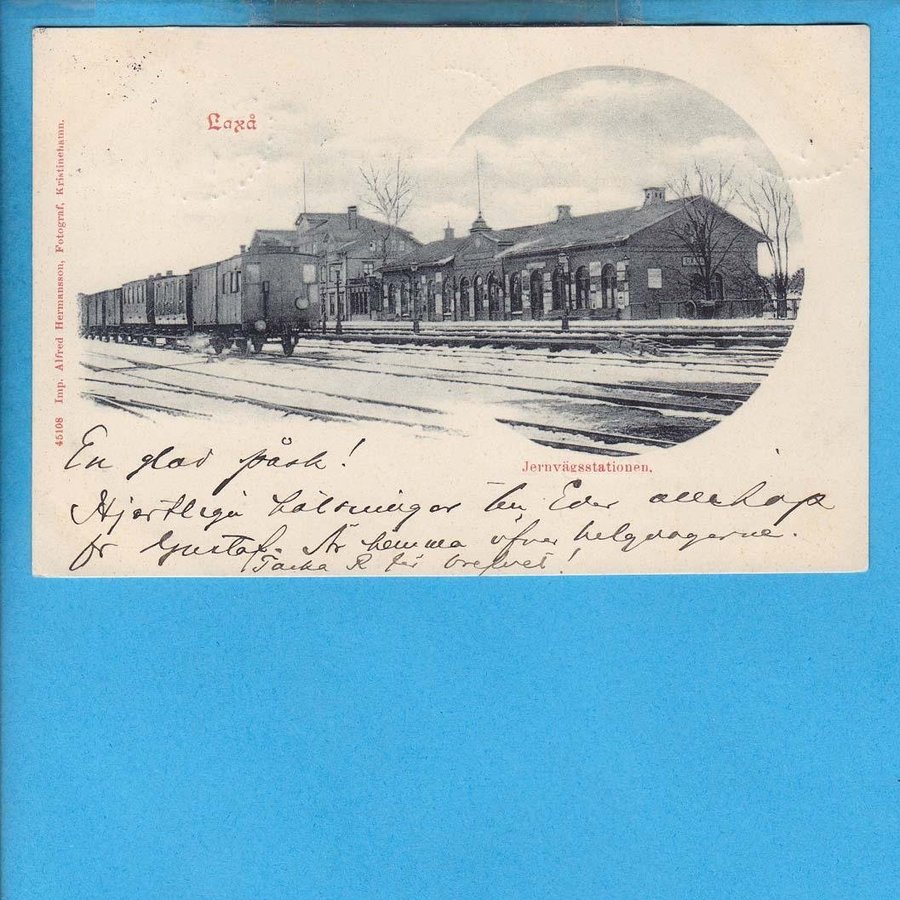 Laxå
45108 Imp. Alfred Hermansson, Fotograf, Kristinehamn.
Jernvägsstationen.
En glad påsk!
Hjertliga hälsningar till Eder allihop
fr Gustaf. Är hemma öfver helgdagarne.
Tacka K för brefvet!